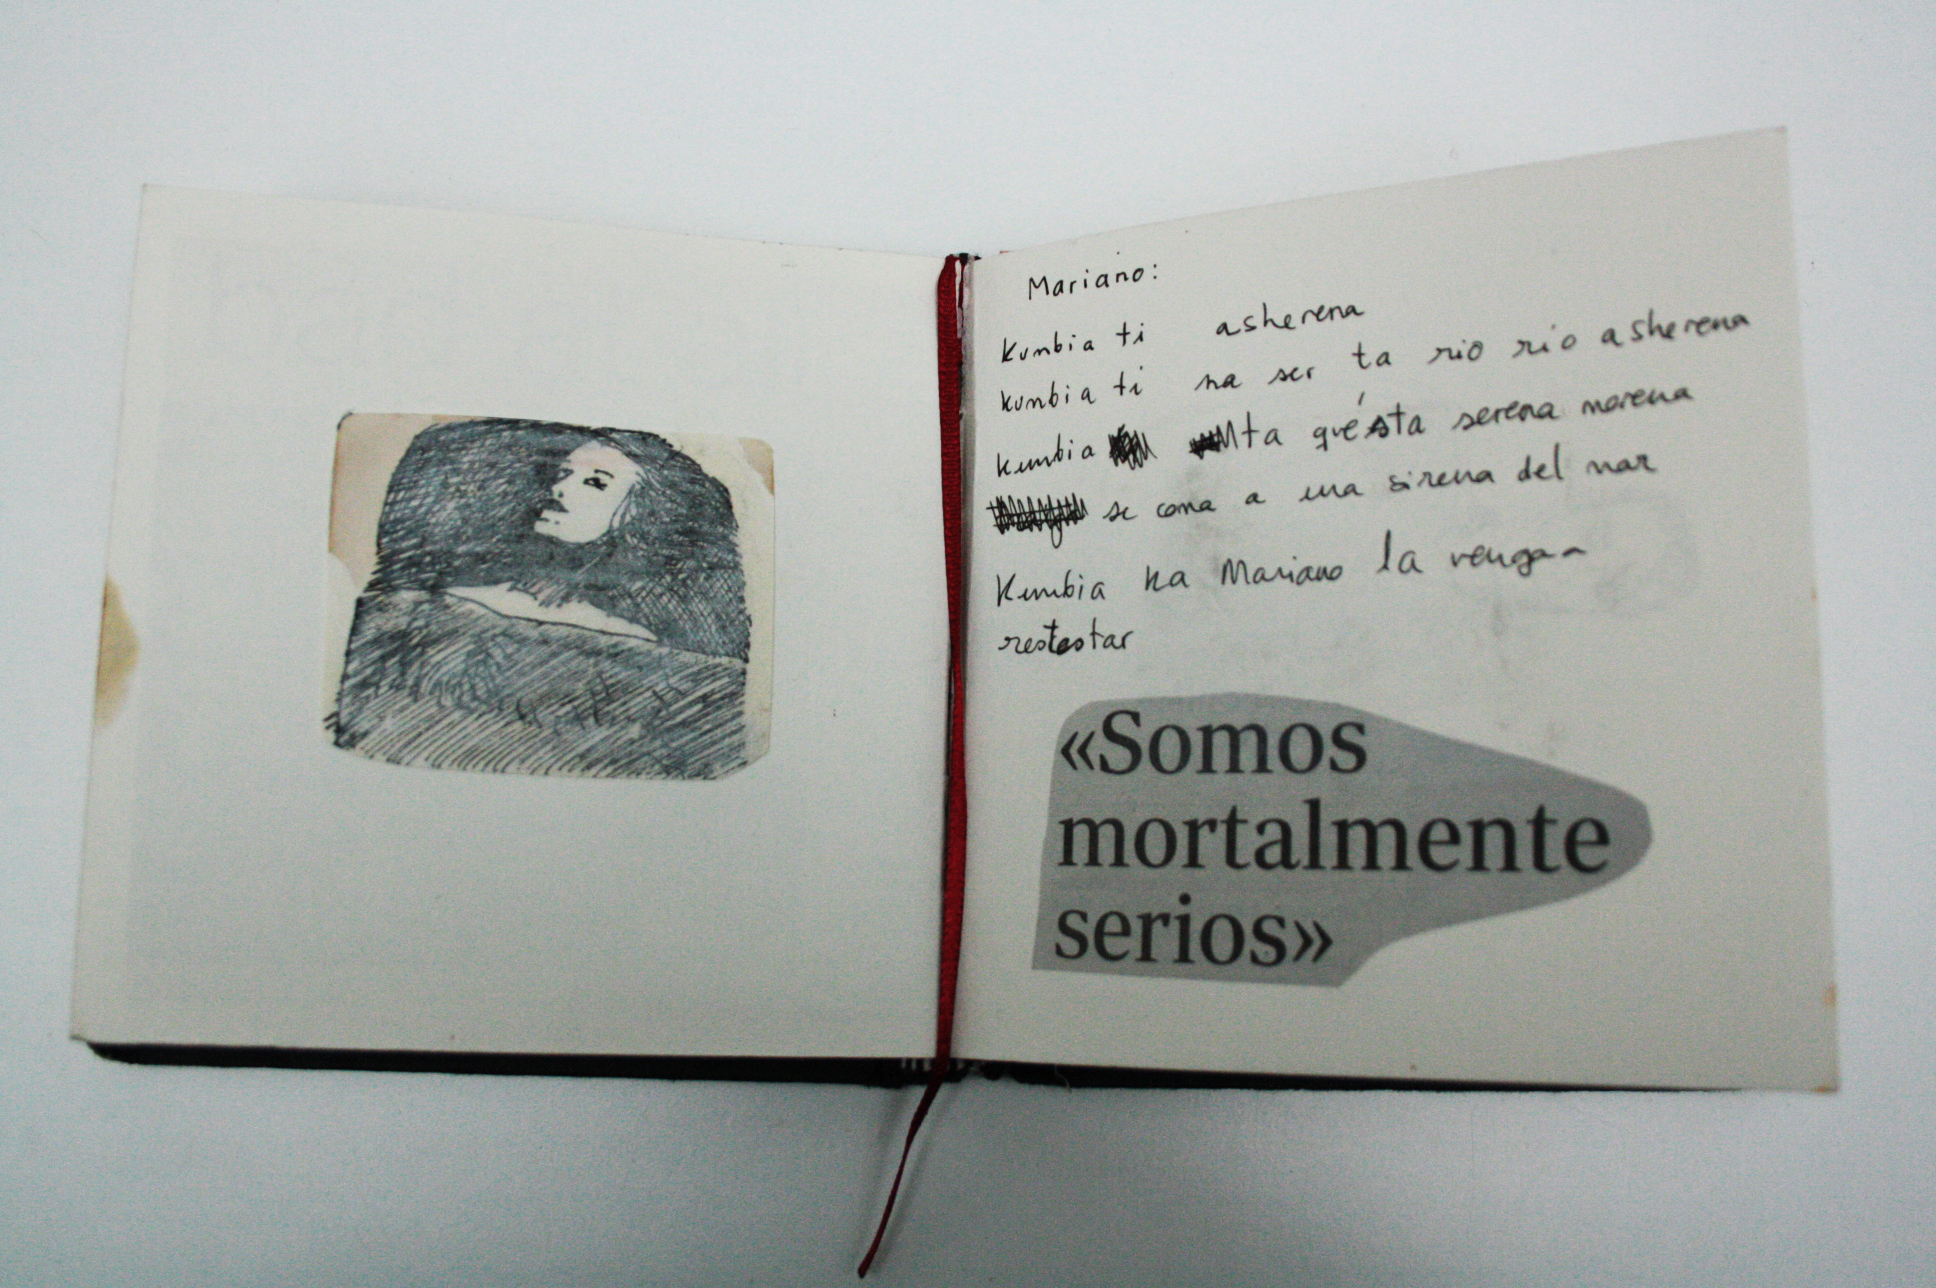 Mariano:
Kumbia ti asherena
kumbia ti na ser ta rio rio asherena
kumbia ta qué sta serena morena
se coma a una sirena del mar
Kumbia ka Mariano la venga
restestar
«Somos
mortalmente
serios»